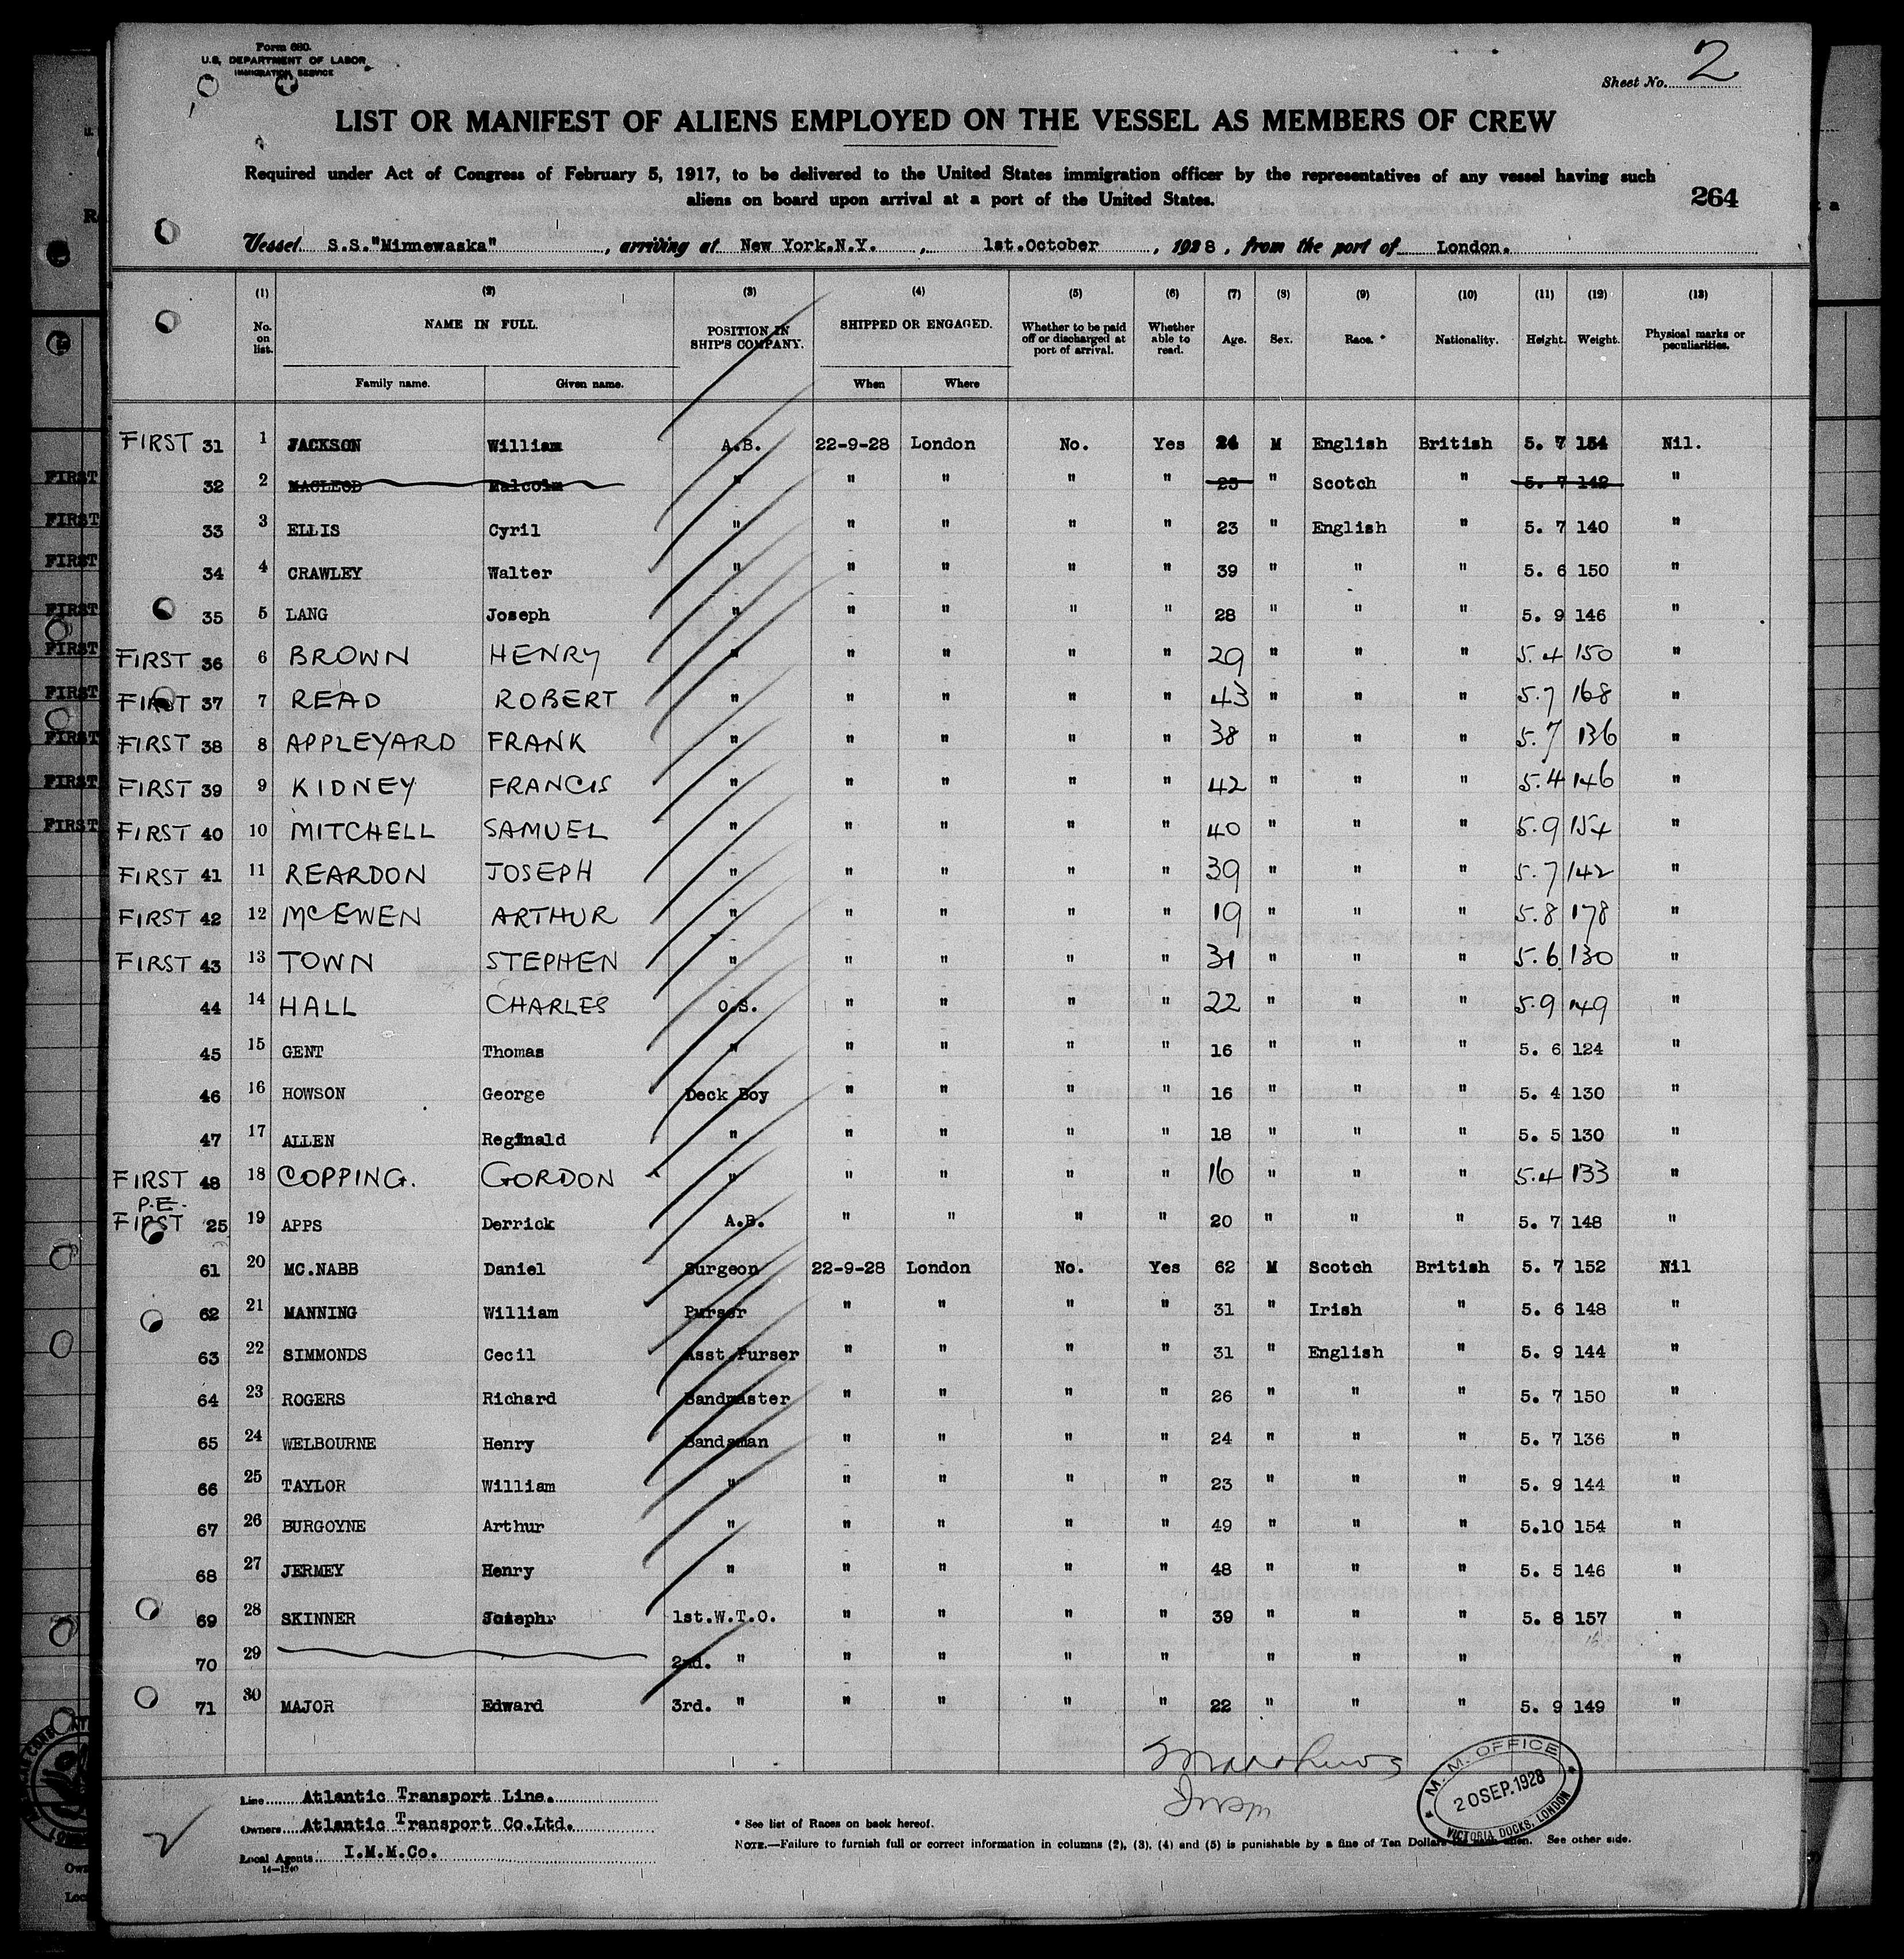 Form 680.
U.S. DEPARTMENT OF LABOR
IMMIGRATION SERVICE
Sheet No. 2
LIST OR MANIFEST OF ALIENS EMPLOYED ON THE VESSEL AS MEMBERS OF CREW
Required under Act of Congress of February 5, 1917, to be delivered to the United States immigration officer by the representatives of any vessel having such
aliens on board upon arrival at a port of the United States.
264
Vessel S.S."Minnewaska", arriving at New York.N.Y., 1st.October, 1928, from the port of London.
(1) (2) (3) (4) (5) (6) (7) (8) (9) (10) (11) (12) (13)
No. on list. NAME IN FULL. POSITION IN SHIP'S COMPANY. SHIPPED OR ENGAGED. Whether to be paid off or discharged at port of arrival. Whether able to read. Age. Sex. Race.* Nationality. Height. Weight. Physical marks or peculiarities.
Family name. Given name. When Where
FIRST 31 1 JACKSON William A.B. 22-9-28 London No. Yes 24 M English British 5. 7 154 Nil.
FIRST 32 2 MACLEOD Malcolm " " " " " 25 " Scotch " 5. 7 142 "
FIRST 33 3 ELLIS Cyril " " " " " 23 " English " 5. 7 140 "
FIRST 34 4 CRAWLEY Walter " " " " " 39 " " " 5. 6 150 "
FIRST 35 5 LANG Joseph " " " " " 28 " " " 5. 9 146 "
FIRST FIRST 36 6 BROWN HENRY " " " " " 29 " " " 5.4 150 "
FIRST FIRST 37 7 READ ROBERT " " " " " 43 " " " 5.7 168 "
FIRST FIRST 38 8 APPLEYARD FRANK " " " " " 38 " " " 5.7 136 "
FIRST FIRST 39 9 KIDNEY FRANCIS " " " " " 42 " " " 5.4 146 "
FIRST FIRST 40 10 MITCHELL SAMUEL " " " " " 40 " " " 5.9 154 "
FIRST 41 11 REARDON JOSEPH " " " " " 39 " " " 5.7 142 "
FIRST 42 12 McEWEN ARTHUR " " " " " 19 " " " 5.8 178 "
FIRST 43 13 TOWN STEPHEN " " " " " 31 " " " 5.6 130 "
44 14 HALL CHARLES O.S. " " " " 22 " " " 5.9 149 "
45 15 GENT Thomas " " " " " 16 " " " 5. 6 124 "
46 16 HOWSON George Deck Boy " " " " 16 " " " 5. 4 130 "
47 17 ALLEN Reginald " " " " " 18 " " " 5. 5 130 "
FIRST 48 18 COPPING. GORDON " " " " " 16 " " " 5.4 133 "
P.E.
FIRST 25 19 APPS Derrick A.B. " " " " 20 " " " 5. 7 148 "
61 20 MC.NABB Daniel Surgeon 22-9-28 London No. Yes 62 M Scotch British 5. 7 152 Nil
62 21 MANNING William Purser " " " " 31 " Irish " 5. 6 148 "
63 22 SIMMONDS Cecil Asst.Purser " " " " 31 " English " 5. 9 144 "
64 23 ROGERS Richard Bandmaster " " " " 26 " " " 5. 7 150 "
65 24 WELBOURNE Henry Bandsman " " " " 24 " " " 5. 7 136 "
66 25 TAYLOR William " " " " " 23 " " " 5. 9 144 "
67 26 BURGOYNE Arthur " " " " " 49 " " " 5.10 154 "
68 27 JERMEY Henry " " " " " 48 " " " 5. 5 146 "
69 28 SKINNER 1st.W.T.O. " " " " 39 " " " 5. 8 157 "
70 29 2nd. " " " " " " " " "
71 30 MAJOR Edward 3rd. " " " " " 22 " " " 5. 9 149 "
Line Atlantic Transport Line.
Owners Atlantic Transport Co.Ltd.
Local Agents I.M.M.Co.
14—1240
* See list of Races on back hereof.
NOTE.—Failure to furnish full or correct information in columns (2), (3), (4) and (5) is punishable by a fine of Ten Dollars for each alien. See other side.
M. M. OFFICE
20 SEP. 1928
VICTORIA DOCKS, LONDON